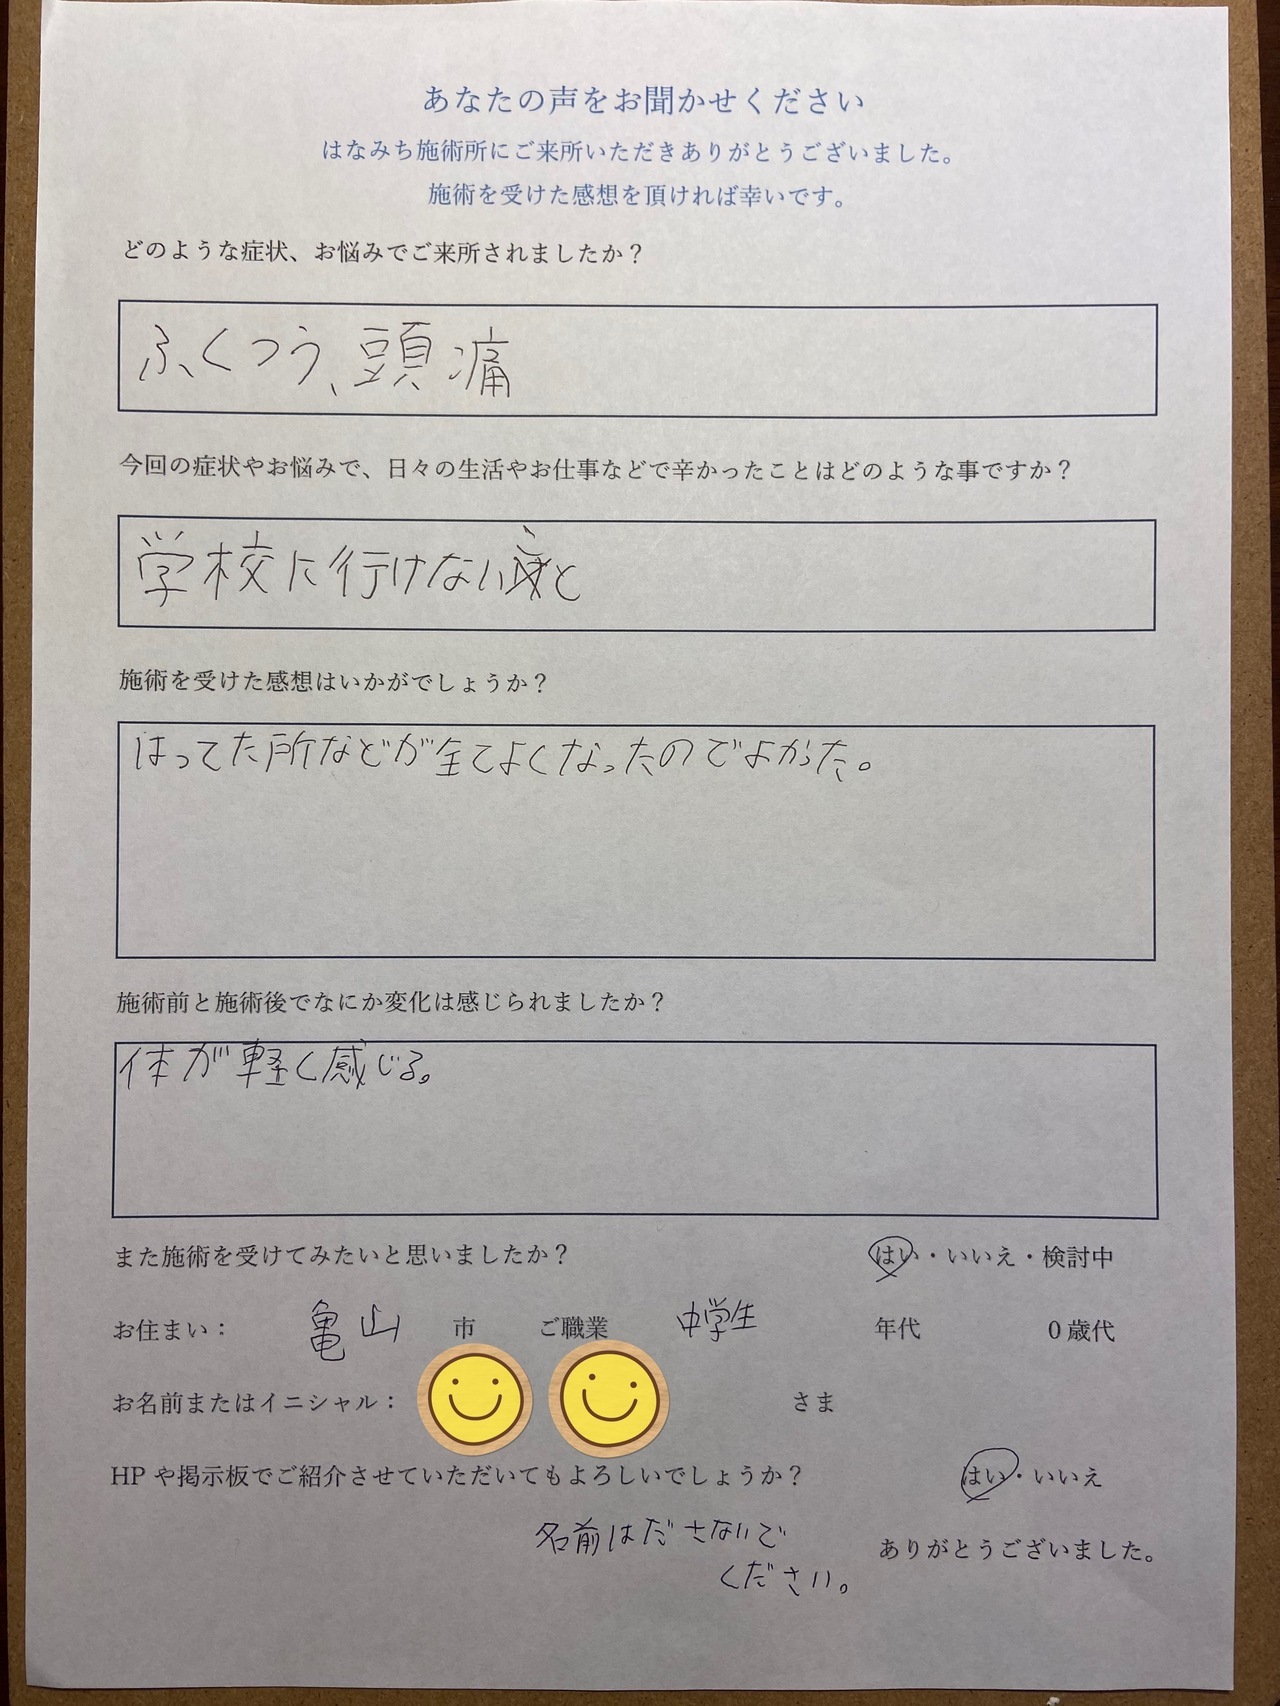 あなたの声をお聞かせください
はなみち施術所にご来所いただきありがとうございました。
施術を受けた感想を頂ければ幸いです。
どのような症状、お悩みでご来所されましたか？
ふくつう、頭痛
今回の症状やお悩みで、日々の生活やお仕事などで辛かったことはどのような事ですか？
学校に行けないこと
施術を受けた感想はいかがでしょうか？
はってた所などが全てよくなったのでよかった。
施術前と施術後でなにか変化は感じられましたか？
体が軽く感じる。
また施術を受けてみたいと思いましたか？ はい・いいえ・検討中
お住まい： 亀山 市 ご職業 中学生 年代 0歳代
お名前またはイニシャル： さま
HPや掲示板でご紹介させていただいてもよろしいでしょうか？ はい・いいえ
名前はださないで
ください。
ありがとうございました。